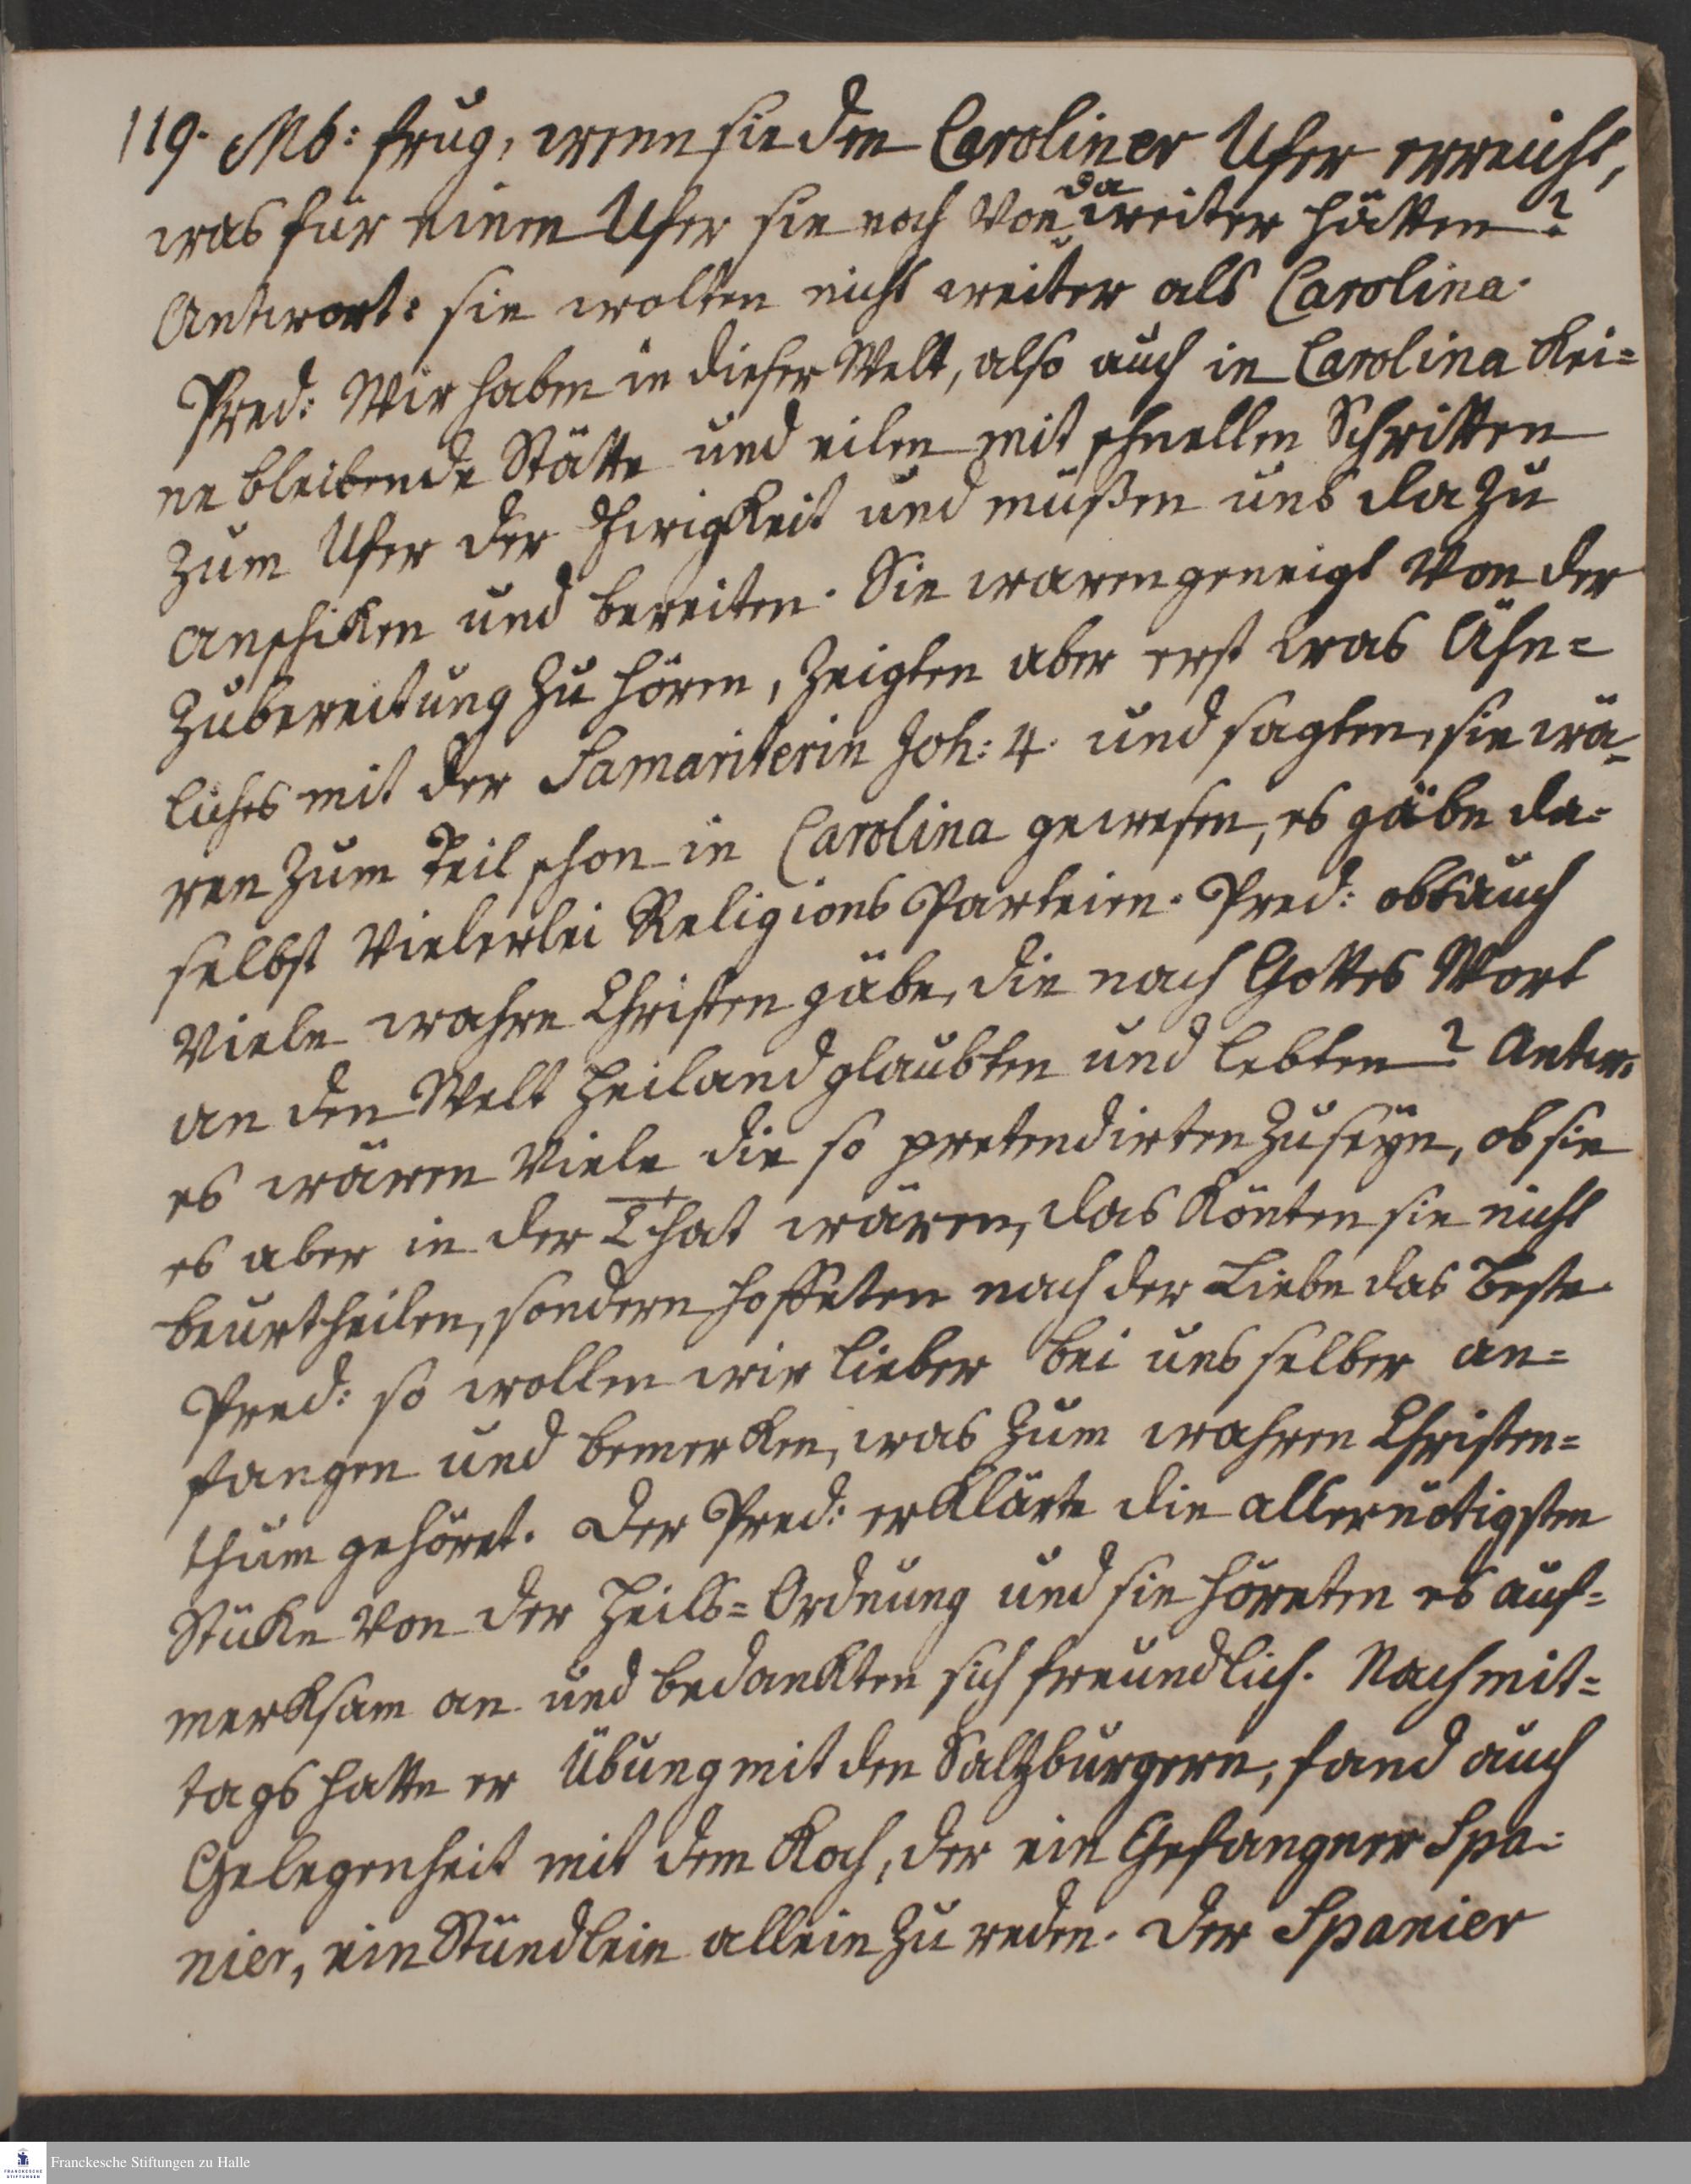 119. Mb: frug, wenn sie den Caroliner Ufer erreicht,
was für einen Ufer sie noch von da weiter hätten?
Antwort: sie wolten nicht weiter als Carolina.
Pred: Wir haben in dieser Welt, also auch in Carolina kei=
ne bleibende Stätte und eilen mit schnellen Schritten
zum Ufer der Ewigkeit und müßen uns dazu
anschiken und bereiten. Sie waren geneigt von der
Zubereitung zu hören, zeigten aber erst was Ähn=
liches mit der Samariterin Joh: 4. und sagten, sie wä=
ren zum Teil schon in Carolina gewesen, es gäbe da=
selbst vielerlei Religions Parteien. Pred: obs auch
viele wahre Christen gäbe, die nach Gottes Wort
an den Welt Heiland glaubten und lebten? Antw.
es wären viele die so pretendirten zu seyn, ob sie
es aber in der That wären, das könten sie nicht
beurtheilen, sondern hoffeten nach der Liebe das Beste.
Pred: so wollen wir lieber bei uns selber an=
fangen und bemerken, was zum wahren Christen=
thum gehöret. Der Pred: erklärte die allernötigsten
Stüke von der Heils=Ordnung und sie höreten es auf=
merksam an und bedankten sich freundlich. Nachmit=
tags hatte er Übung mit den Saltzburgern, fand auch
Gelegenheit mit dem Koch, der ein Gefangner Spa=
nier, ein Stündlein allein zu reden. Der Spanier
Franckesche Stiftungen zu Halle
FRANCKESCHE
STIFTUNGEN